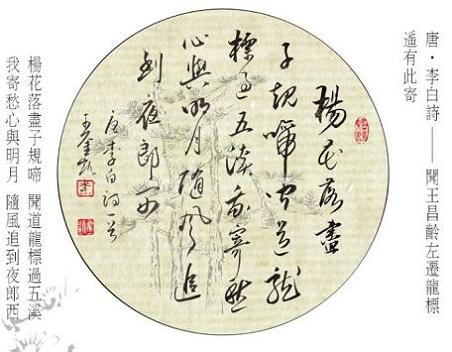 唐·李白詩 —— 聞王昌齡左遷龍標
遥有此寄
楊花落盡
子規啼聞道龍
標過五溪我寄愁
心與明月隨風追
到夜郎西
唐李白詩一首
楊花落盡子規啼 聞道龍標過五溪
我寄愁心與明月 隨風追到夜郎西